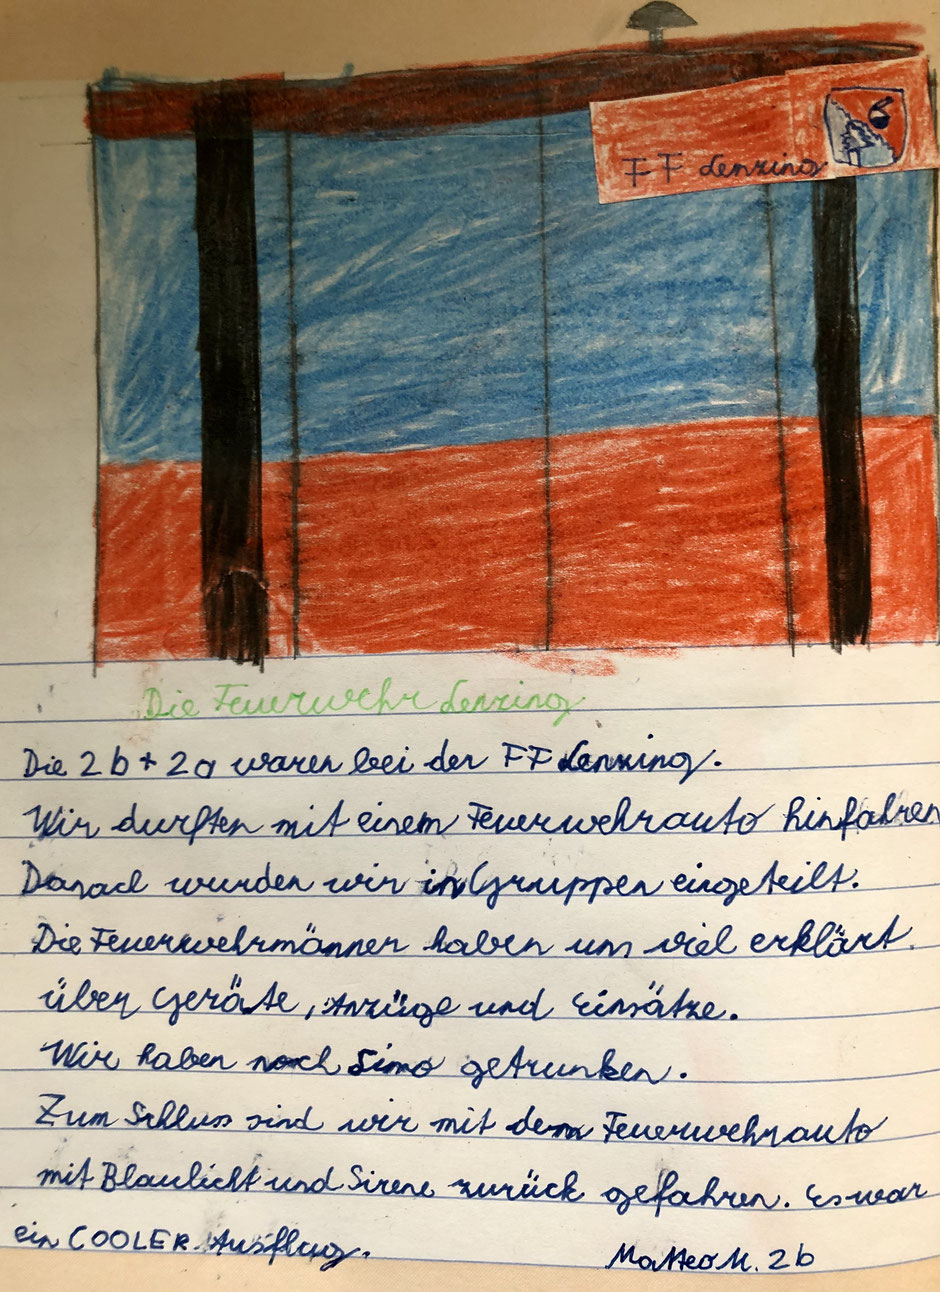 FF Lenzing
Die Feuerwehr Lenzing
Die 2b + 2a waren bei der FF Lenzing.
Wir durften mit einem Feuerwehrauto hinfahren
Danach wurden wir in Gruppen eingeteilt.
Die Feuerwehrmänner haben uns viel erklärt.
über Geräte, Anzüge und Einsätze.
Wir haben noch Limo getrunken.
Zum Schluss sind wir mit dem Feuerwehrauto
mit Blaulicht und Sirene zurück gefahren. Es war
ein COOLER Ausflug.
Matteo M. 2b